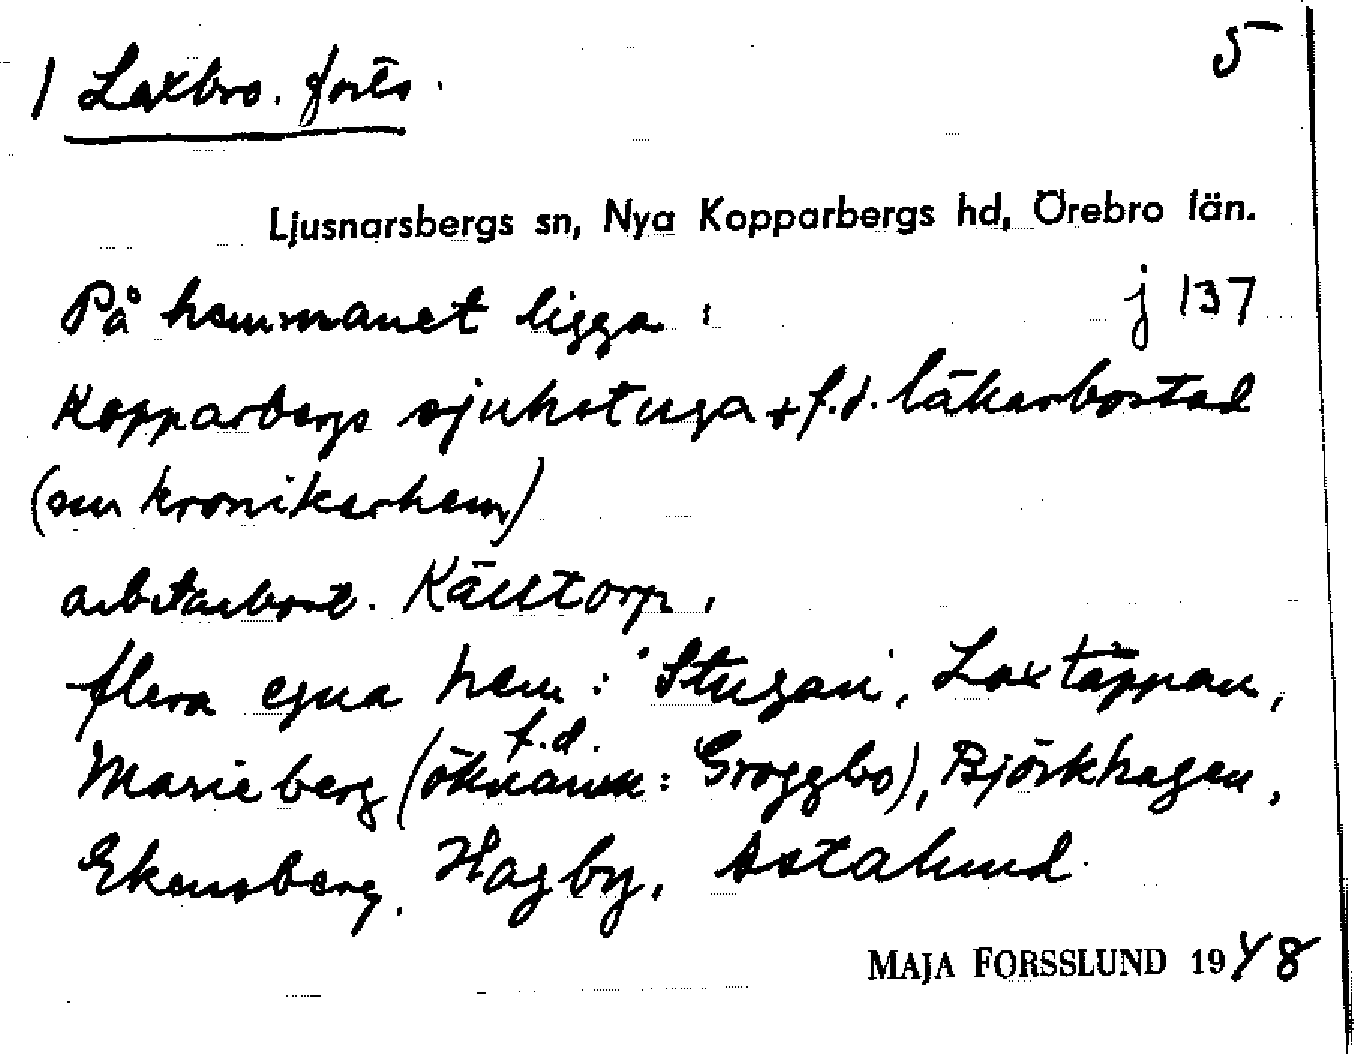 1 Laxbro. forts. 5
Ljusnarsbergs sn, Nya Kopparbergs hd, Örebro län.
På hemmanet ligga: j 137
Kopparbergs sjukstuga + f.d. läkarbostad
(nu kronikerhem)
arbetarbost. Källtorp,
flera egna hem: Stugan, Laxtäppan,
f.d.
Marieberg (öknamn: Groggbo), Björkhagen,
Ekensberg, Hagby, Astalund.
MAJA FORSSLUND 1948